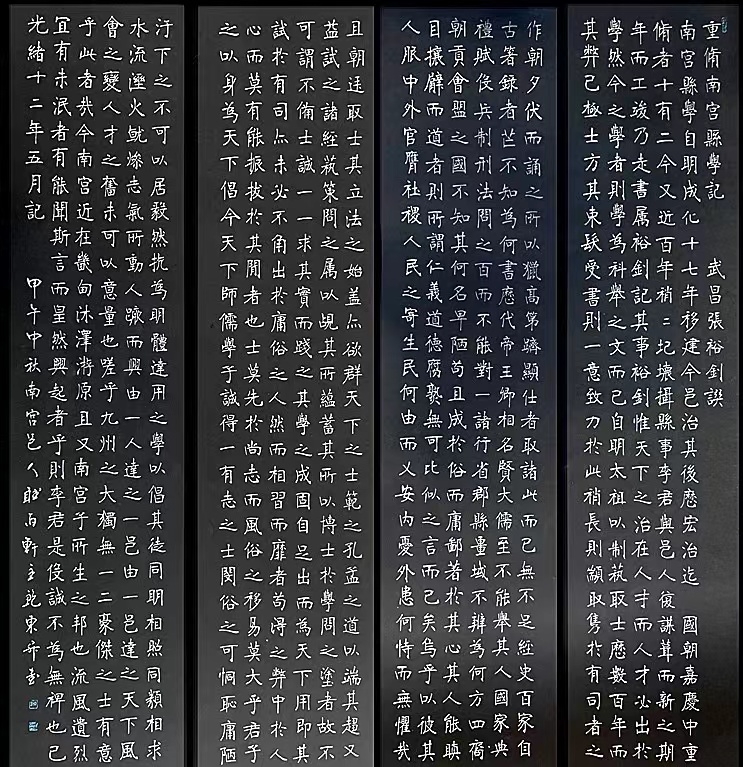 重脩南宮縣學記 武昌張裕釗譔
南宮縣學自明成化十七年移建今邑治其後歷宏治迄 國朝嘉慶中重
脩者十有二今又近百年稍〻圮壞攝縣事李君與邑人復謀葺而新之期
年而工竣乃走書属裕釗記其事裕釗惟天下之治在人才而人才必出於
學然今之學者則學為科舉之文而已自明太祖以制萟取士歷數百年而
其弊已極士方其束髮受書則一意致力於此稍長則顓取雋於有司者之
作朝夕伏而誦之所以獵高第躋顯仕者取諸此而已無不足經史百家自
古著錄者芒不知為何書歷代帝王卿相名賢大儒至不能舉其人國家典
禮賦役兵制刑法問之百而不能對一諸行省郡縣畺域不辨為何方四裔
朝貢會盟之國不知其何名卑陋苟且成於俗而庸鄙著於其心其人能瞋
目攘臂而道者則所謂仁義道德腐爛無可比似之言而已矣烏乎以彼其
人服中外官膺社稷人民之寄生民何由而乂安內憂外患何恃而無懼哉
且朝廷取士其立法之始蓋亦欲群天下之士範之孔孟之道以端其趨又
益試之諸經萟策問之属以覘其所蘊蓄其所以博士於學問之塗者故不
可謂不備士誠一一求其實而踐之其學之成固自足出而為天下用即其
試於有司亦未必不角出於庸俗之人然而相習而靡者苟得之弊中於人
心而莫有能振拔於其間者也士莫先於尚志而風俗之移易莫大乎君子
之以身為天下倡今天下師儒學子誠得一有志之士閔俗之可恫恥庸陋
汙下之不可以居毅然抗為明體達用之學以倡其徒同明相照同類相求
水流溼火就燥志氣所動人蹶而興由一人達之一邑由一邑達之天下風
會之變人才之奮未可以意量也嗟乎九州之大獨無一二豪傑之士有意
乎此者哉今南宮近在畿甸沐澤游原且又南宮子所生之邦也流風遺烈
宜有未泯者有能聞斯言而呈然興起者乎則李君是役誠不為無裨也已
光緒十二年五月記 甲午中秋南宮邑人 軒主 東升書